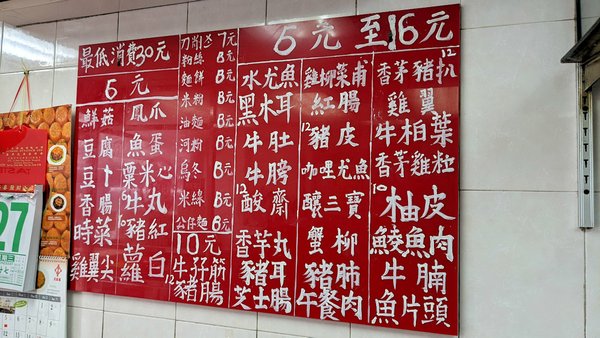 最低消費30元
6元
鮮菇 鳳爪
豆腐 魚蛋
豆卜 粟米心
香腸 牛丸
時菜 豬紅
雞翼尖 蘿白
刀削 7元
粉絲 8元
麵餅 8元
米粉 8元
油麵 8元
河粉 8元
烏冬 8元
米線 8元
公仔麵 8元
10元
牛孖筋
12豬腸
6元至16元
水魷魚 雞柳菜甫 香茅豬扒12
黑木耳 紅腸 雞翼
牛肚 12豬皮 牛柏葉
牛膀 咖哩魷魚 香茅雞粒
12酸齋 釀三寶 10柚皮
香芋丸 蟹柳 鯪魚肉
豬耳 豬肺 牛腩
芝士腸 午餐肉 魚片頭
27